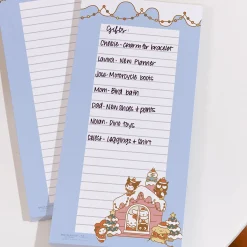 Gifts:
Cherie - Charm for bracelet
Laura - New Planner
Jose - Motorcycle boots
Mom - Bird bath
Dad - New Shoes & pants
Nolan - Dino toys
Daisy - Leggings & shirt